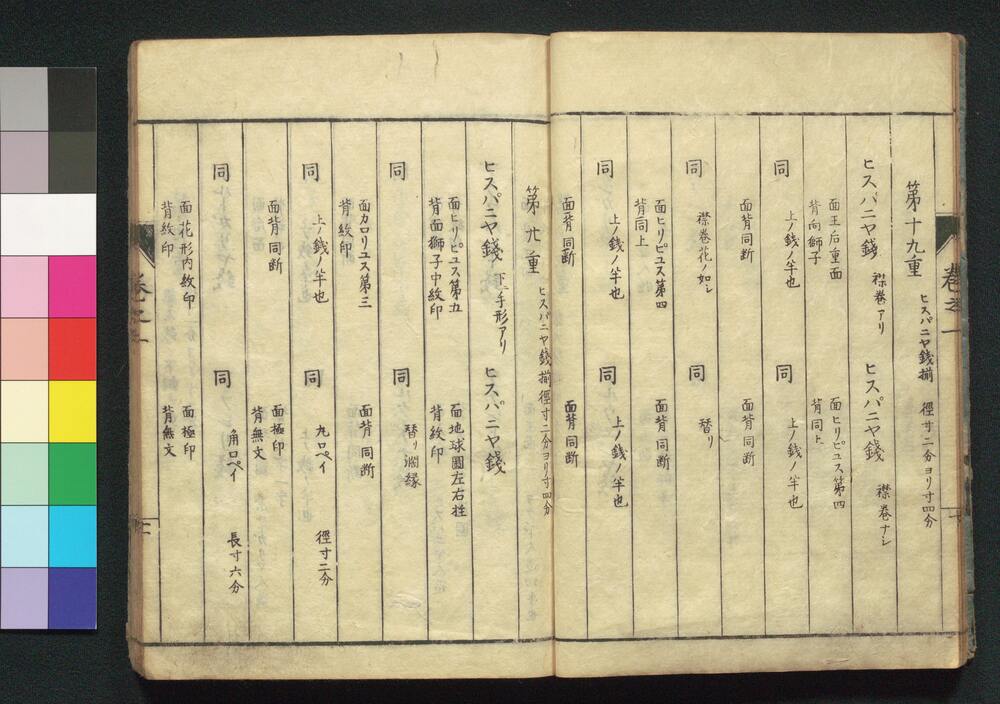 巻之一
第十九重
ヒスパニヤ錢揃 徑寸二分ヨリ寸四分
ヒスパニヤ錢 襟巻アリ
ヒスパニヤ錢 襟巻ナシ
面王后重面
背向獅子
面ヒリピユス第四
背同上
同 上ノ錢ノ半也
同 上ノ錢ノ半也
面背同断
面背同断
同 襟巻花ノ如シ
同 替リ
面ヒリピユス第四
背同上
面背同断
同 上ノ錢ノ半也
同 上ノ錢ノ半也
面背同断
面背同断
第廿重
ヒスパニヤ錢揃徑寸二分ヨリ寸四分
ヒスパニヤ錢 下ニ手形アリ
ヒスパニヤ錢
面ヒリピユス第五
背面獅子中紋印
面地球圖左右柱
背紋印
同
同 替リ濶縁
面カロリユス第三
背紋印
面背同断
同 上ノ錢ノ半也
同 丸ロペイ 徑寸二分
面背同断
面極印
背無文
同
同 角ロペイ 長寸六分
面花形内紋印
背紋印
面極印
背無文